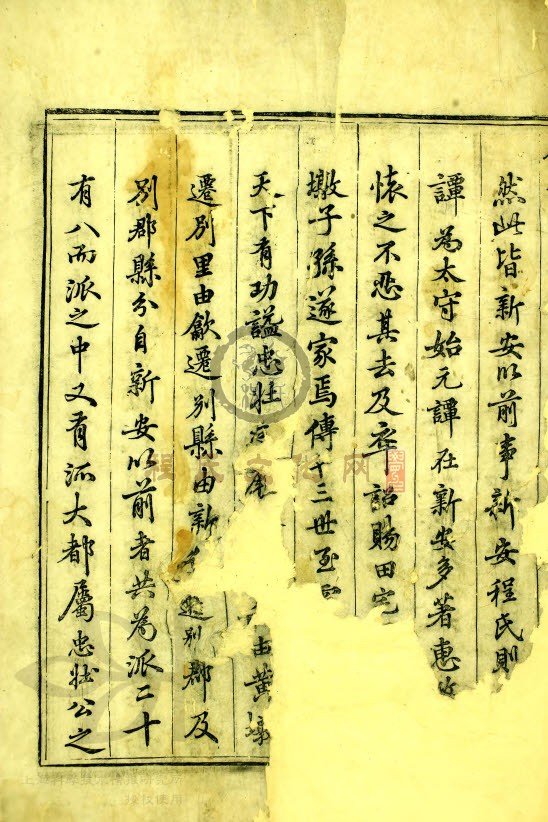 然此皆新安以前事新安程氏則
譚為太守始元譚在新安多著惠
懐之不忍其去及卒詔賜田宅
墩子孫遂家焉傳十三世至
天下有功謚忠壯 由黃墩
遷別里由歙遷別縣由新 遷別郡及
別郡縣分自新安以前者共為派二十
有八而派之中又有派大都屬忠壯公之